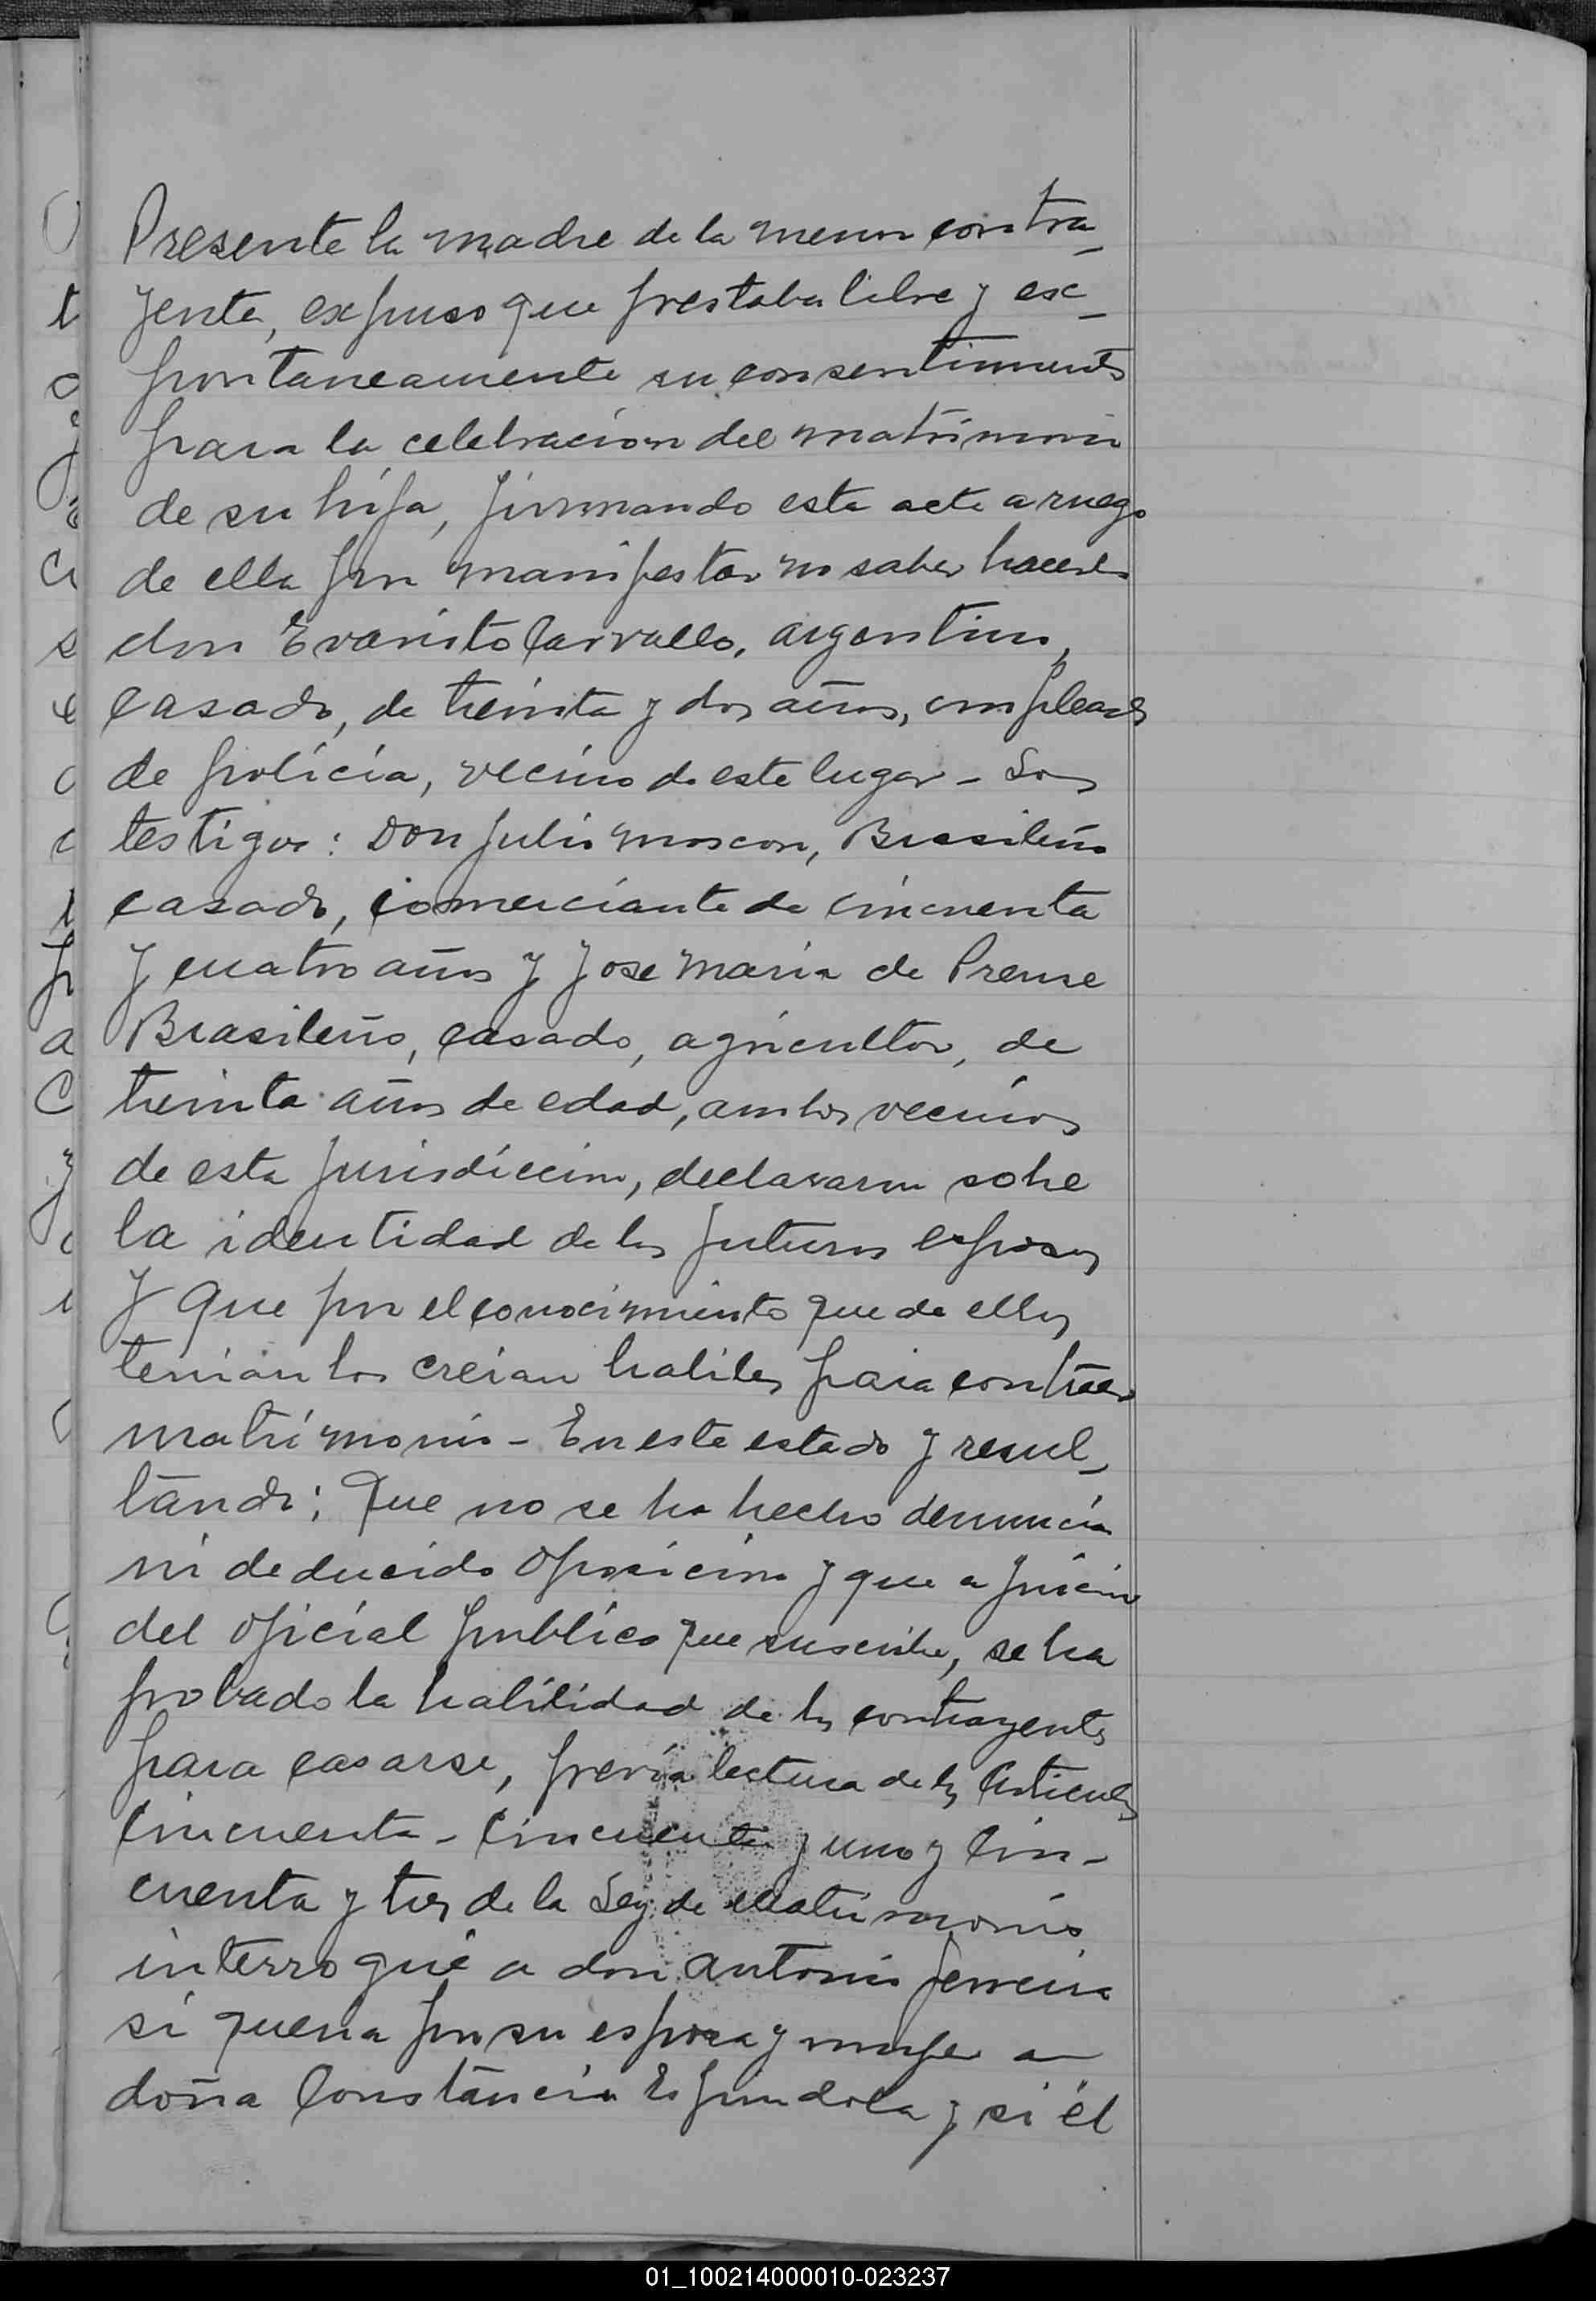 Presente la madre de la menor contra-
yente, expuso que prestaba libre y esc-
pontaneamente su consentimiento
para la celebracion del matrimonio
de su hija, firmando esta acta a ruego
de ella por manifestar no saber hacerlo
don Evaristo Carvallo, argentino,
casado, de treinta y dos años, empleado
de policía, vecino de este lugar - Son
testigos: Don Julio Moscon, Brasileño
casado, comerciante de cincuenta
y cuatro años y Jose Maria de
Brasileño, casado, agricultor, de
treinta años de edad, ambos vecinos
de esta jurisdiccion, declararon sobre
la identidad de los futuros esposos
y que por el conocimiento que de ellos
tenian los creian habiles para contraer
matrimonio - En este estado y resul-
tando: Que no se ha hecho denuncia
ni deducido oposicion y que a juicio
del oficial publico que suscribe, se ha
probado la habilidad de los contrayentes
para casarse, previa lectura de los Articulos
Cincuenta - Cincuenta y uno y Cin-
cuenta y tres de la Ley de Matrimonio
interrogué a don Antonio Ferreira
si queria por su esposa y mujer a
doña Constancia Espindola y si él
01_100214000010-023237